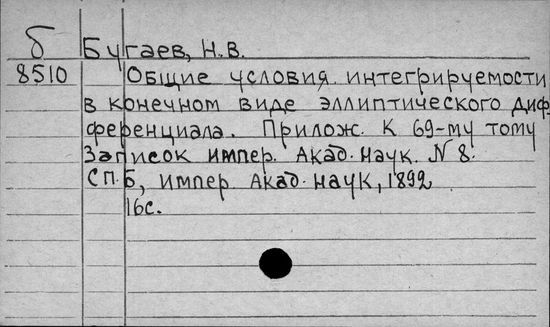 б Бугаев, Н.В.
8510 Общие условия интегрируемости
в конечном виде эллиптического диф
ференциала. Прилож. к 69-му тому
Записок импер. Акад. наук. N 8.
СП.Б, импер. Акад. наук, 1892
16с.